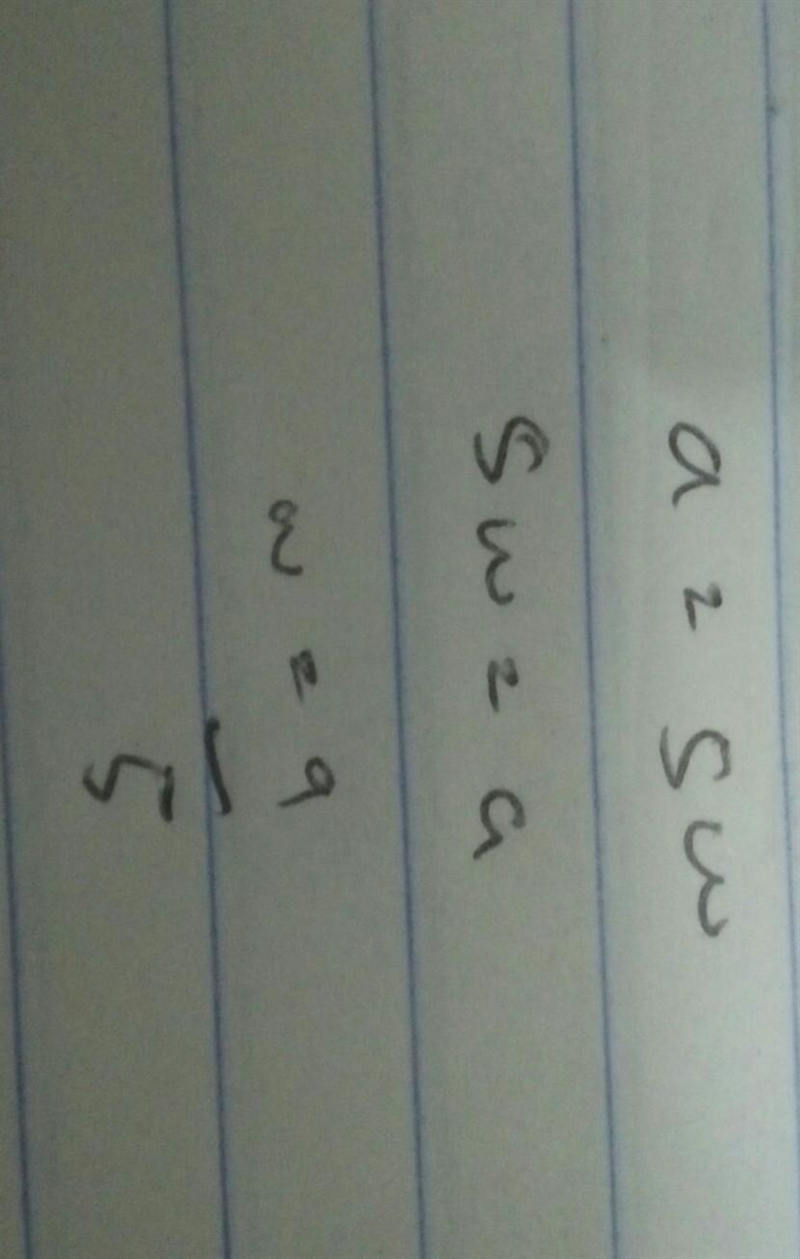 a = 5w
5w = a
w = a
5